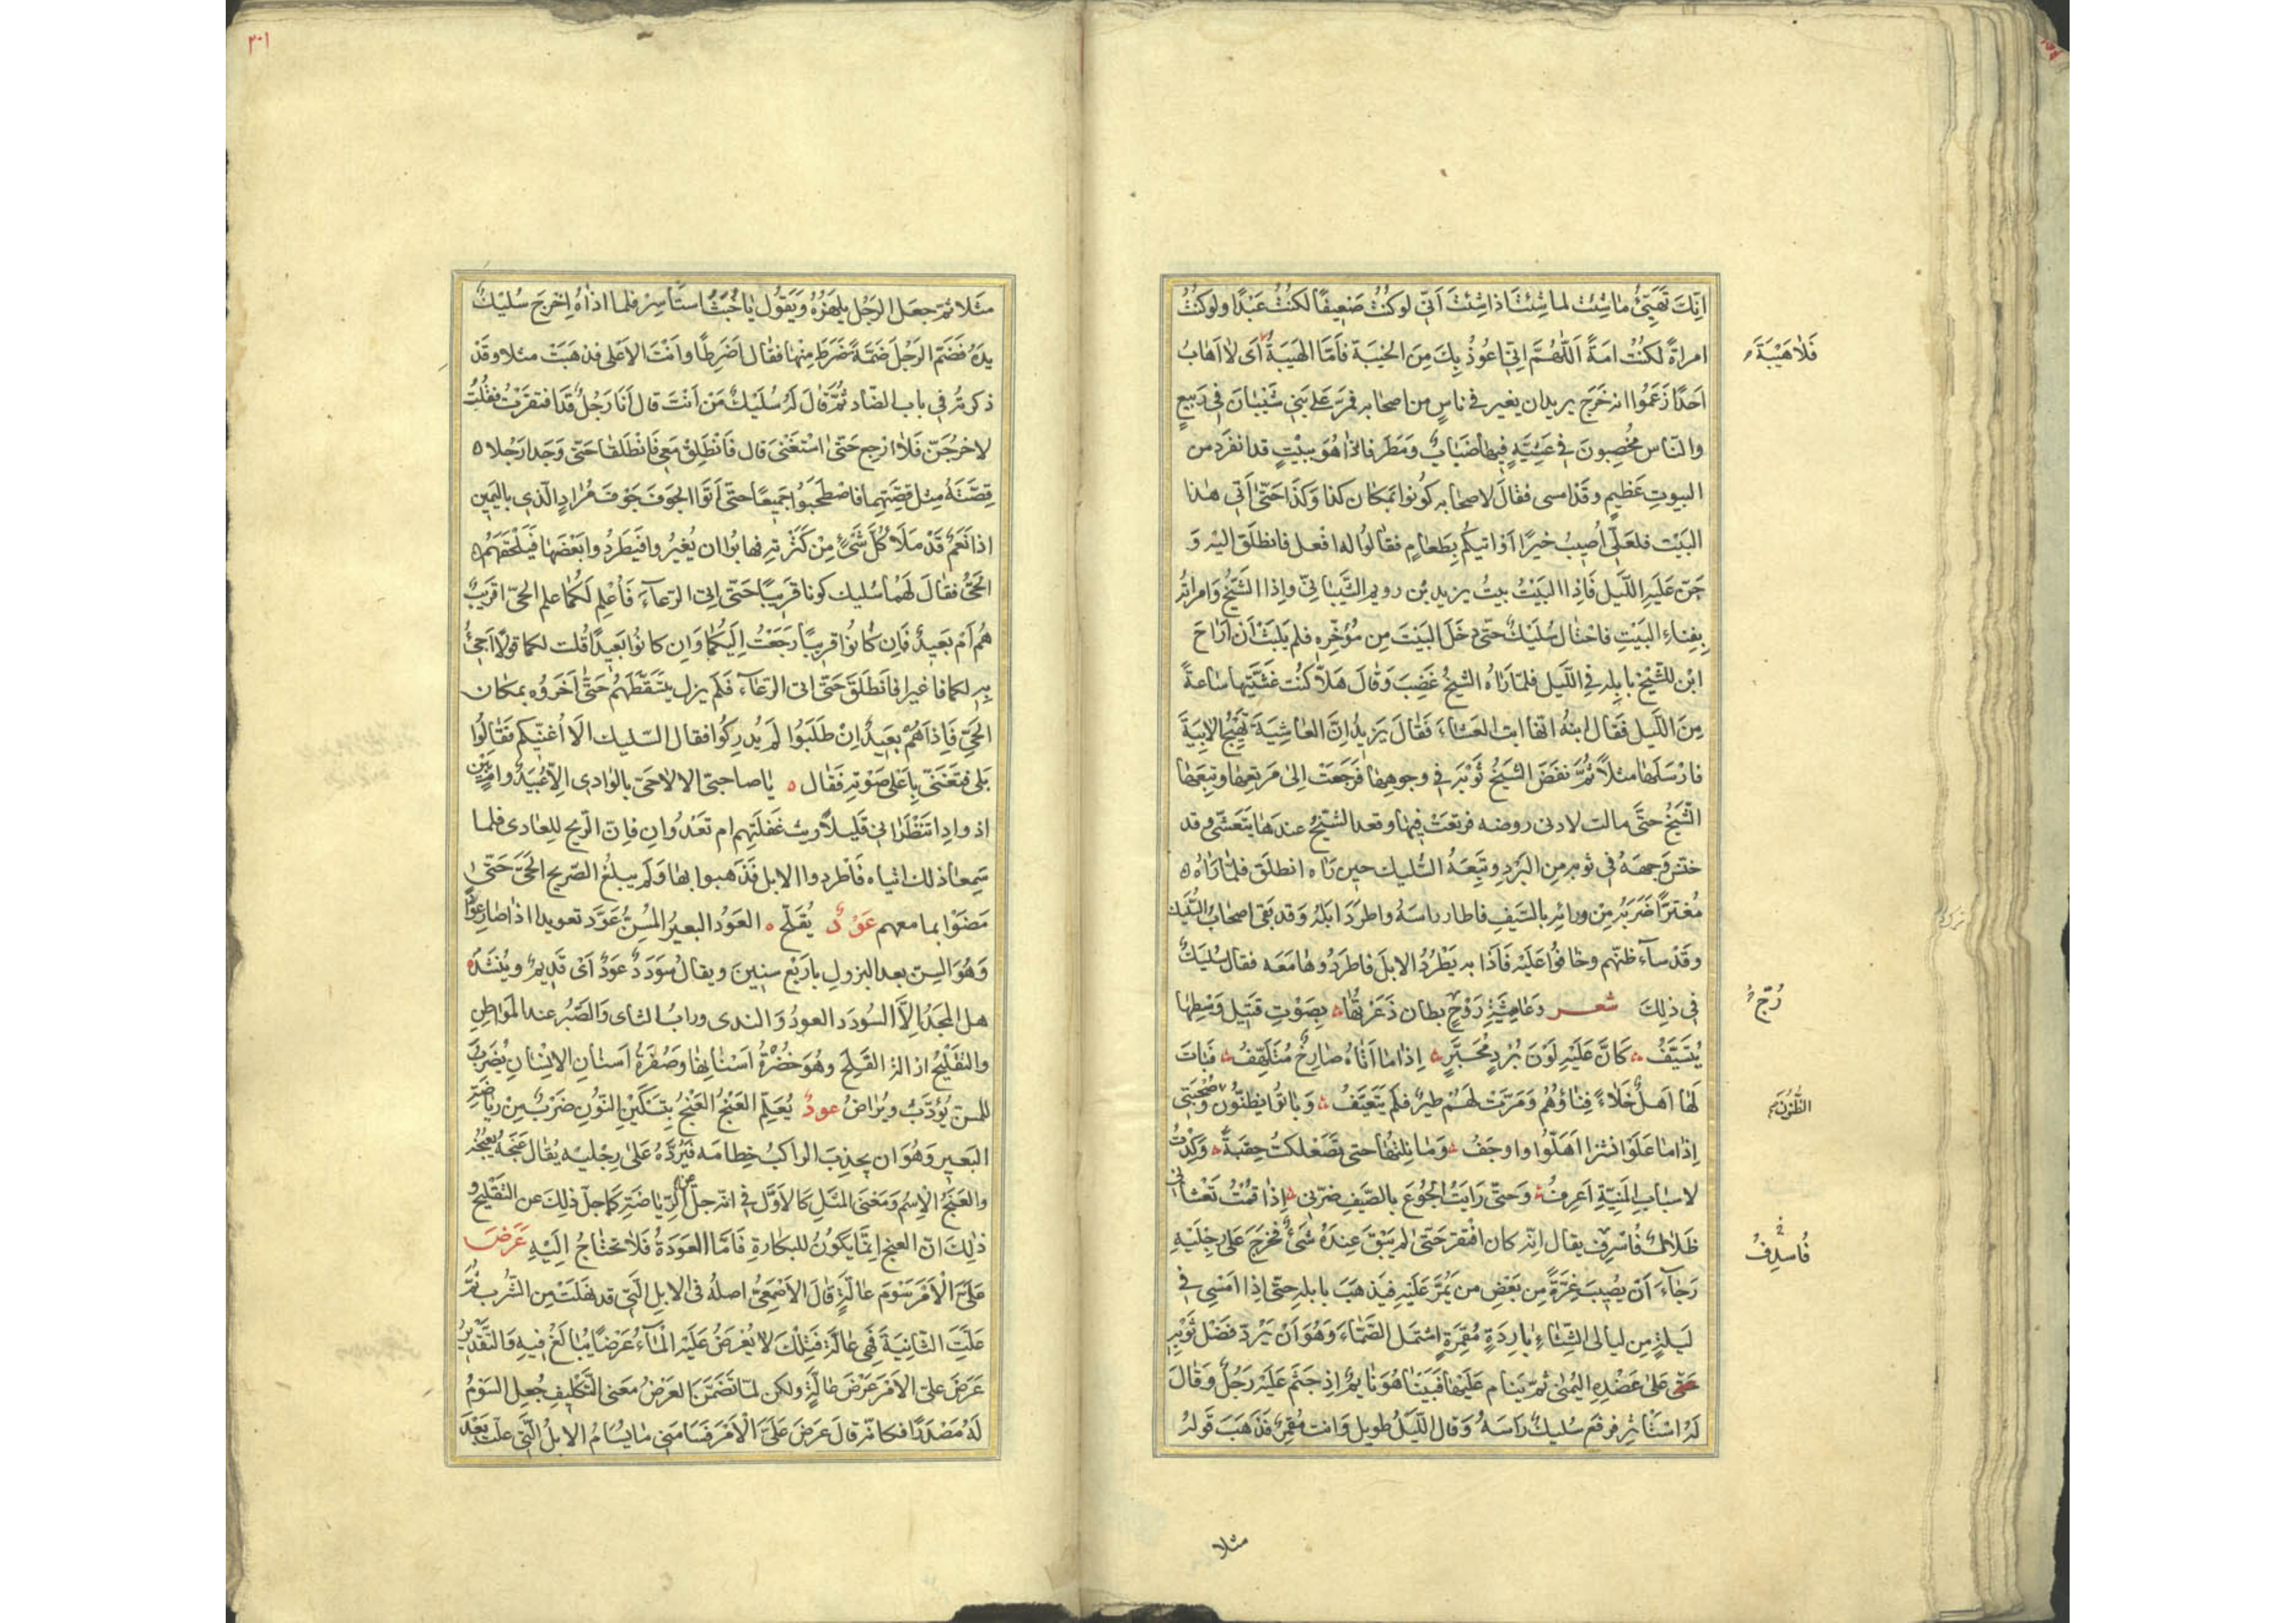 انّك تُهَيّئُ ما شئت لما شئت اذا شئت انّى لو كنتُ ضعيفًا لكنتُ عَبْدًا ولو كنتُ
امراةً لكنتُ امَةً اَللّهُمَّ انّى اعُوذُ بِكَ مِنَ الخيبَة فاَمّا الهَيبَةُ اَى لا اَهابُ
فَلا هَيْبَةَ
احَدًا زَعَمُوا انه خَرَجَ يريدان يغير فى ناسٍ من اصحابه فمرّ عَلى بَنى شَيْبَانَ فى رَبيعٍ
والنّاس مُخْصِبونَ فى عَشِيَّةٍ فيها ضَبَابٌ وَمَطَر فاذا هُوَ ببيْتٍ قد انفَرَد من
البيوتِ عَظيم وقَدْ امسى فقالَ لاصحابه كُونُوا بمكان كذا وَكَذَا حَتّى اٰتى هذا
البَيْت فلعَلّى اُصيبُ خيرًا اَوْ اتيكُم بِطَعَامٍ فقالوُا له افعل فانطلَق اليْه وَ
جَنّ عَلَيهِ اللّيل فَاذِا البَيْتُ بيتُ يزيد بْن رويم الشَّيْبَانىّ واذا الشَّيْخُ وَامراتُه
بِفِناءِ البَيْتِ فاحْتال سُلَيْكٌ حتّى دخَلَ البَيْتَ مِن مُؤَخّرِهِ فلم يَلبَثْ اَنْ اَرَاحَ
ابْن للشّيْخ بابِلهِ فى اللَّيل فلمّا رَاٰهُ الشيخُ غَضِبَ وَقَالَ هَلاّ كُنْتَ عَشَّيْتَها سَاعةً
مِنَ اللَّيل فَقال ابنُهُ انّها ابت العَشاءَ فَقَالَ يَزيدُ اِنَّ العَاشيَةَ تُهَيِّجُ الابيَةَ
فارسَلَها مثلاً ثُمَّ نفَضَ الشَيخُ ثَوْبَه فى وجوهِها فَرجَعَتْ اِلى مَرتعِها وتبِعَها
الشَّيخُ حتَّى مالت لادنى روضه فرتعَتْ فيها وقعد الشَيْخُ عندَها يتَعَشّى وقد
خنس وَجهَهُ فى ثوبه مِن البَرَدِ وتَبِعَهُ السُّليك حين رَاه انطلَق فلمّا رَاهُ
مُغتَرًّا ضَرَبَهُ مِنْ ورائِهِ بالسّيفِ فاطار راسَهُ واطرَدَ ابِلَهُ وَقد بَقى اصحَابُ السُّلَيك
وقَدْ سآءَ ظنّهم وخافوُا عَلَيْه فَاذا به يَطرُدُ الابلَ فاطرَدُوها مَعَه فقال سُليكٌ
فى ذلكَ شعــر وعَاشِيَةٍ رَوْحٍ بطان ذَعَرْتُهَا بِصَوْتِ قتيل وَسْطِها
رُجّ
يُتَسَيَّفُ كَانَّ عَلَيْهِ لَوْنَ بُرْدٍ مُحَبَّرٍ اِذا ما اَتَاهُ صَارِخٌ مُتَلَهِّفُ فَباتَ
لَها اَهلٌ خَلاءٌ فِناؤهُم وَمَرّت لَهُمْ طيرٌ فلَم يَتعَيَّفُوا وَباتوُا يظنّونَ وَصُحْبَتى
الظُّنُونَ
اِذا ما عَلَوْا نشزا اَهَلّوا واوجَفُوا وَما نِلتُها حتى تَصَعْلكتُ حِقبَةً وَكِدْتُ
لاسبَابِ المَنيّة اَعرِفُ وَحَتّى رَايْتُ الجُوعَ بالصّيفِ ضرّنى اِذا قُمْتُ تَغْشَانى
ظَلالٌ فَاُسْرِفُ يقال انّه كان افْتقَر حَتّى لَم يَبْقَ عِندَهُ شَىْءٌ فخرَجَ عَلى رِجْليْهِ
فاُسدِفُ
رَجَآءَ اَنْ يُصيبَ غِرّةً مِن بَعْضِ مَن يَمُرّ عَلَيْهِ فيَذهَبَ بابله حتّى اِذا اَمْسى فى
لَيلةٍ مِن ليالى الشّتاءِ بارِدَةٍ مُقمِرَةٍ اِشتمل الصَّمّاءَ وَهُوَ اَنْ يَرُدّ فَضْل ثَوْبِهِ
عَلى عَضُدِهِ اليُمْنى ثمّ يَنام عَلَيْها فبَيْنا هُوَ نايمٌ اِذ جَثَم عَلَيْه رَجُلٌ وَقالَ
لَهُ اسْتَاسِر فرفَع سُليكٌ رَاسَهُ وقال اللّيلُ طويل وَانت مُقمِرٌ فذهَبَ قولهُ
مثلا
٣٠١
مثَلا ثم جعَل الرَجُل يلهَزُهُ وَيَقوُل يا خُبَثُ استَاسِرْ فلما اذاهُ اِخرَجَ سُليْكٌ
يدَهُ فضَمّ الرَجُلَ ضَمّةً ضَرَطَ مِنْها فقال اَضَرِطًا واَنْتَ الاَعْلى فذهَبَتْ مثلا وقَدْ
ذكرتُه فى باب الضّاد ثُمّ قالَ لَهُ سُلَيْكٌ مَن اَنتَ قال اَنَا رَجُلٌ قَد افتقرتُ فقُلتُ
لاخرُجَنّ فَلا ارجع حَتّى اسْتَغنى قال فانْطَلِقْ مَعى فَانْطلَقا حَتّى وَجَدا رَجُلا
قِصّتُهُ مِثل قِصّتِهِما فاصْطَحَبوُا جَميعًا حتّى اَتَوَا الجَوفَ جَوْفَ مُرادٍ الّذى باليَمَين
اذا نَعَمٌ قَدْ مَلَأَ كُلّ شَىْءٍ مِنْ كَثرَتِهِ فهابُوا ان يُغيرُوا فيَطرُدُوا بَعْضَها فيَلحَقَهُم
الحَىُّ فقالَ لَهُما سُليك كونا قَريبًا حَتّى اتى الرّعآءَ فَاُعْلِمَ لكُما علم الحىّ اقَريبٌ
هُم اَمْ بَعيدٌ فَاِن كانُوا قريبًا رَجَعْتُ اِلَيكُما وَان كانُوا بَعيدًا قُلت لكما قولا اُجىءُ
بهِ لكما فاغيرا فانطَلَقَ حَتّى اتى الرّعَآءَ فَلَم يزل يَتَسَقّطَهُم حَتّى اَخبَرُوه بمَكان
الحَىّ فَاِذا هُمْ بعيدٌ اِنْ طَلَبَوُا لَم يُدرِكُوا فقال السّليك الاَ اُغنّيكم فقالوُا
بَلى فتَغَنّى بِاَعْلى صَوْتِهِ فقال يا صاحبىّ الا لا حَىّ بالوادى الاّ عَبيدٌ وامٍ بين
اذوادِ اتَنظُرانى قليلاً ريث غَفلَتِهِم ام تَعْدُوانِ فاِنّ الرّيح للعَادى فلما
سَمِعا ذلك اتياه فَاطردوا الابل فَذَهبوا بها وَلَم يبلغ الصّريخ الحَىّ حَتّى
مَضَوْا بما معهم عَوْدٌ يُقَلّحُ العَوْدُ البعيرُ المُسِنُّ عَوَّد تعويدا اذا صَار عَوْدًا
وَهُوَ السِنّ بعد البزولِ بارَبْع سِنينَ ويقالُ سُوَددٌ عَوْدٌ اَىْ قَديمٌ ويُنْشَدُ
هل المجدُ اِلاَّ السُودَد العودُ وَالندى ورابُ الثأى وَالصَّبْرُ عند المَواطِنِ
والتقليحُ ازالة القَلَح وهُوَ خُضْرَةُ اَسْنانِها وصُفرَةُ اَسنانِ الانْسانِ يُضرَبُ
للمسنّ يُؤدّبُ ويُراضُ عودٌ يُعَلّم العَنْجَ العَنْجُ بتَسْكينِ النّونِ ضَرْبٌ مِنْ رياضَةِ
البَعيرِ وَهُوَ ان يجذِبَ الراكبُ خِطامَه فيَرُدّهُ عَلى رِجْليْه يُقال عَنَجَهُ يَعنُجُهُ
والعَنَجُ الاِسْمُ وَمَعْنى المثَلِ كَالاَوّلِ فى انّه جلّ عن الرّياضَةِ كَما جلّ ذلِكَ عن التّقليح و
ذلِكَ انّ العنج اِنّما يكونُ للبكارةِ فاَمّا العَوَدَةُ فَلا تحتاجُ الَيْهِ عَرَضَ
عَلَىَّ الاَمْرَ سَوْمَ عالّةٍ قالَ الاَصْمَعِىّ اصلهُ فى الابِلِ الّتى قد نَهلَتْ مِن الشّرب ثُمَّ
عَلَّتِ الثّانيَةَ فهىَ عالّةٌ فتِلكَ لا يُعْرَضُ عَلَيْها المآءُ عَرْضًا يُبالَغُ فيهِ وَالتّقديرُ
عَرَضَ علىّ الاَمْرَ عَرْضَ عالّةٍ ولكن لمّا تضَمّنَ العَرْضُ مَعنى التّكليف جُعِل السَوْمُ
لَهُ مَصْدَرًا فكانّه قالَ عَرَضَ عَلَىّ الاَمْرَ فسَامَنى ما يُسَامُ الابلُ الّتى علّت بَعْدَ